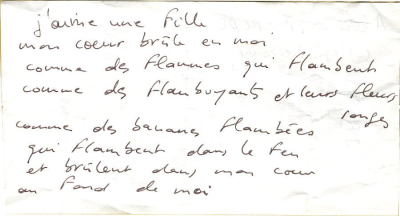 j'aime une fille
mon coeur brûle en moi
comme des flammes qui flambent
comme des flamboyants et leurs fleurs
rouges
comme des bananes flambées
qui flambent dans le feu
et brûlent dans mon coeur
au fond de moi